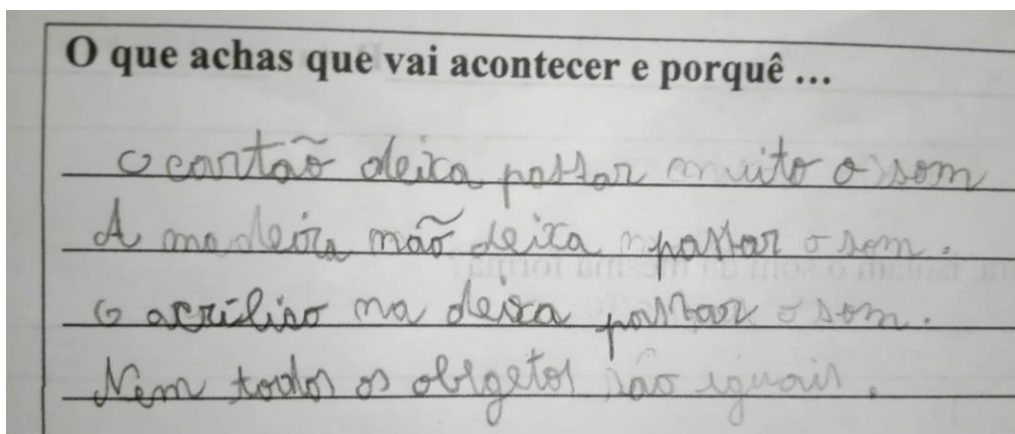 O que achas que vai acontecer e porquê ...
O cartão deixa passar muito o som
A madeira não deixa passar o som.
O acrílico na deixa passar o som.
Nem todos os obigetos são iguais.